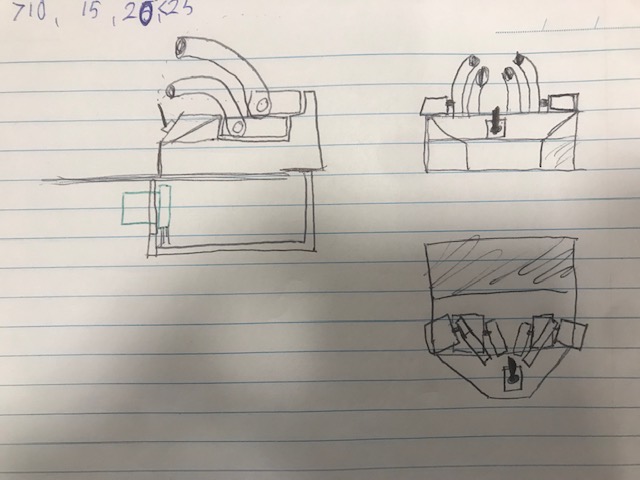 710, 15, 20, 25